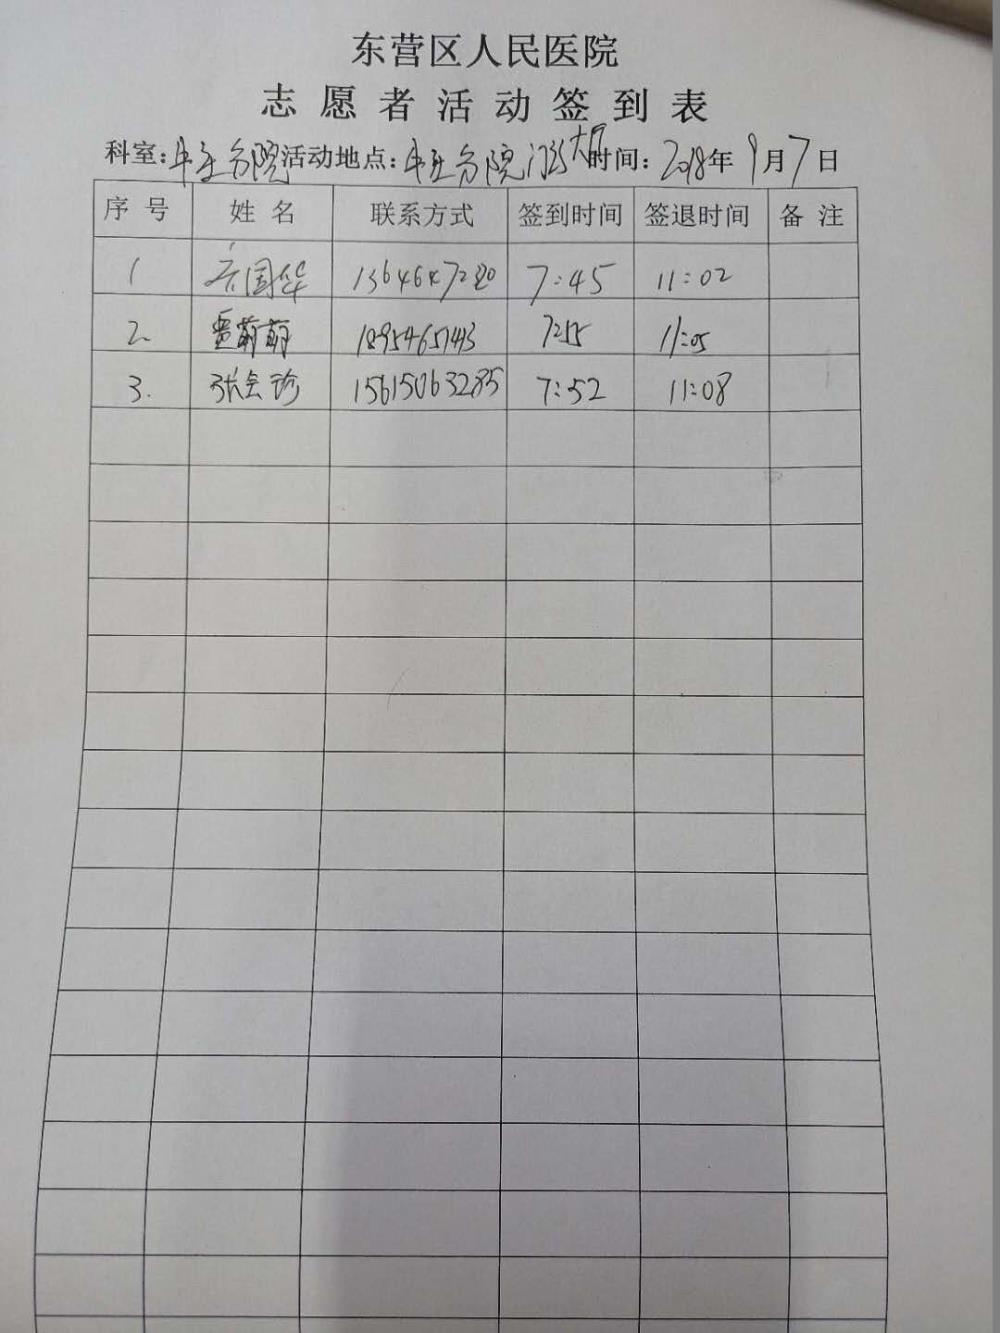 东营区人民医院
志愿者活动签到表
科室：牛庄分院 活动地点：牛庄分院门诊大厅 时间：2018年9月7日
序号 姓名 联系方式 签到时间 签退时间 备注
1 国华 7:45 11:02
2 萌萌 7:55 11:05
3. 张会诊 15615063285 7:52 11:08